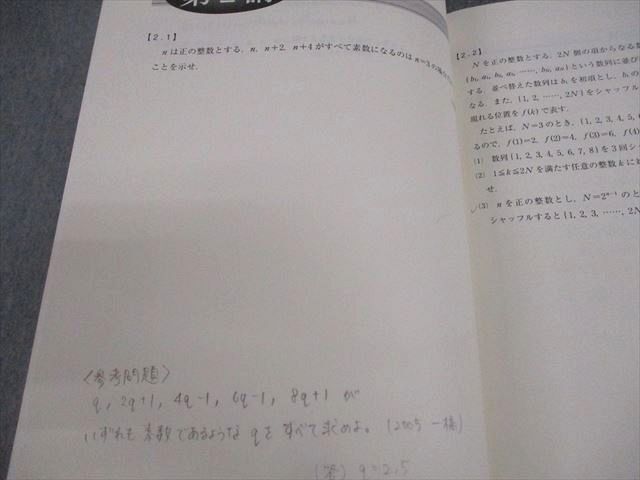 【2.1】
nは正の整数とする．n, n+2, n+4がすべて素数になるのはn=3の
ことを示せ．
〈参考問題〉
q, 2q+1, 4q-1, 6q-1, 8q+1 が
いずれも素数であるような q を すべて求めよ。 (2005 一橋)
(答) q=2,5
【2.2】
Nを正の整数とする．2N個の項からなる数
{b₁, a₁, b₂, a₂, ……, b_N, a_N}という数列に並び
する．並べ替えた数列は b₁ を初項とし，b₁の
なる．また，{1, 2, ……, 2N}をシャッフル
現れる位置を f(k) で表す．
たとえば，N=3のとき，{1, 2, 3, 4, 5, 6
るので，f(1)=2, f(2)=4, f(3)=6, f(4)
(1) 数列{1, 2, 3, 4, 5, 6, 7, 8}を3回シ
(2) 1≦k≦2Nを満たす任意の整数kに
せ．
(3) nを正の整数とし，N=2ⁿ⁻¹のと
シャッフルすると{1, 2, 3, ……, 2N